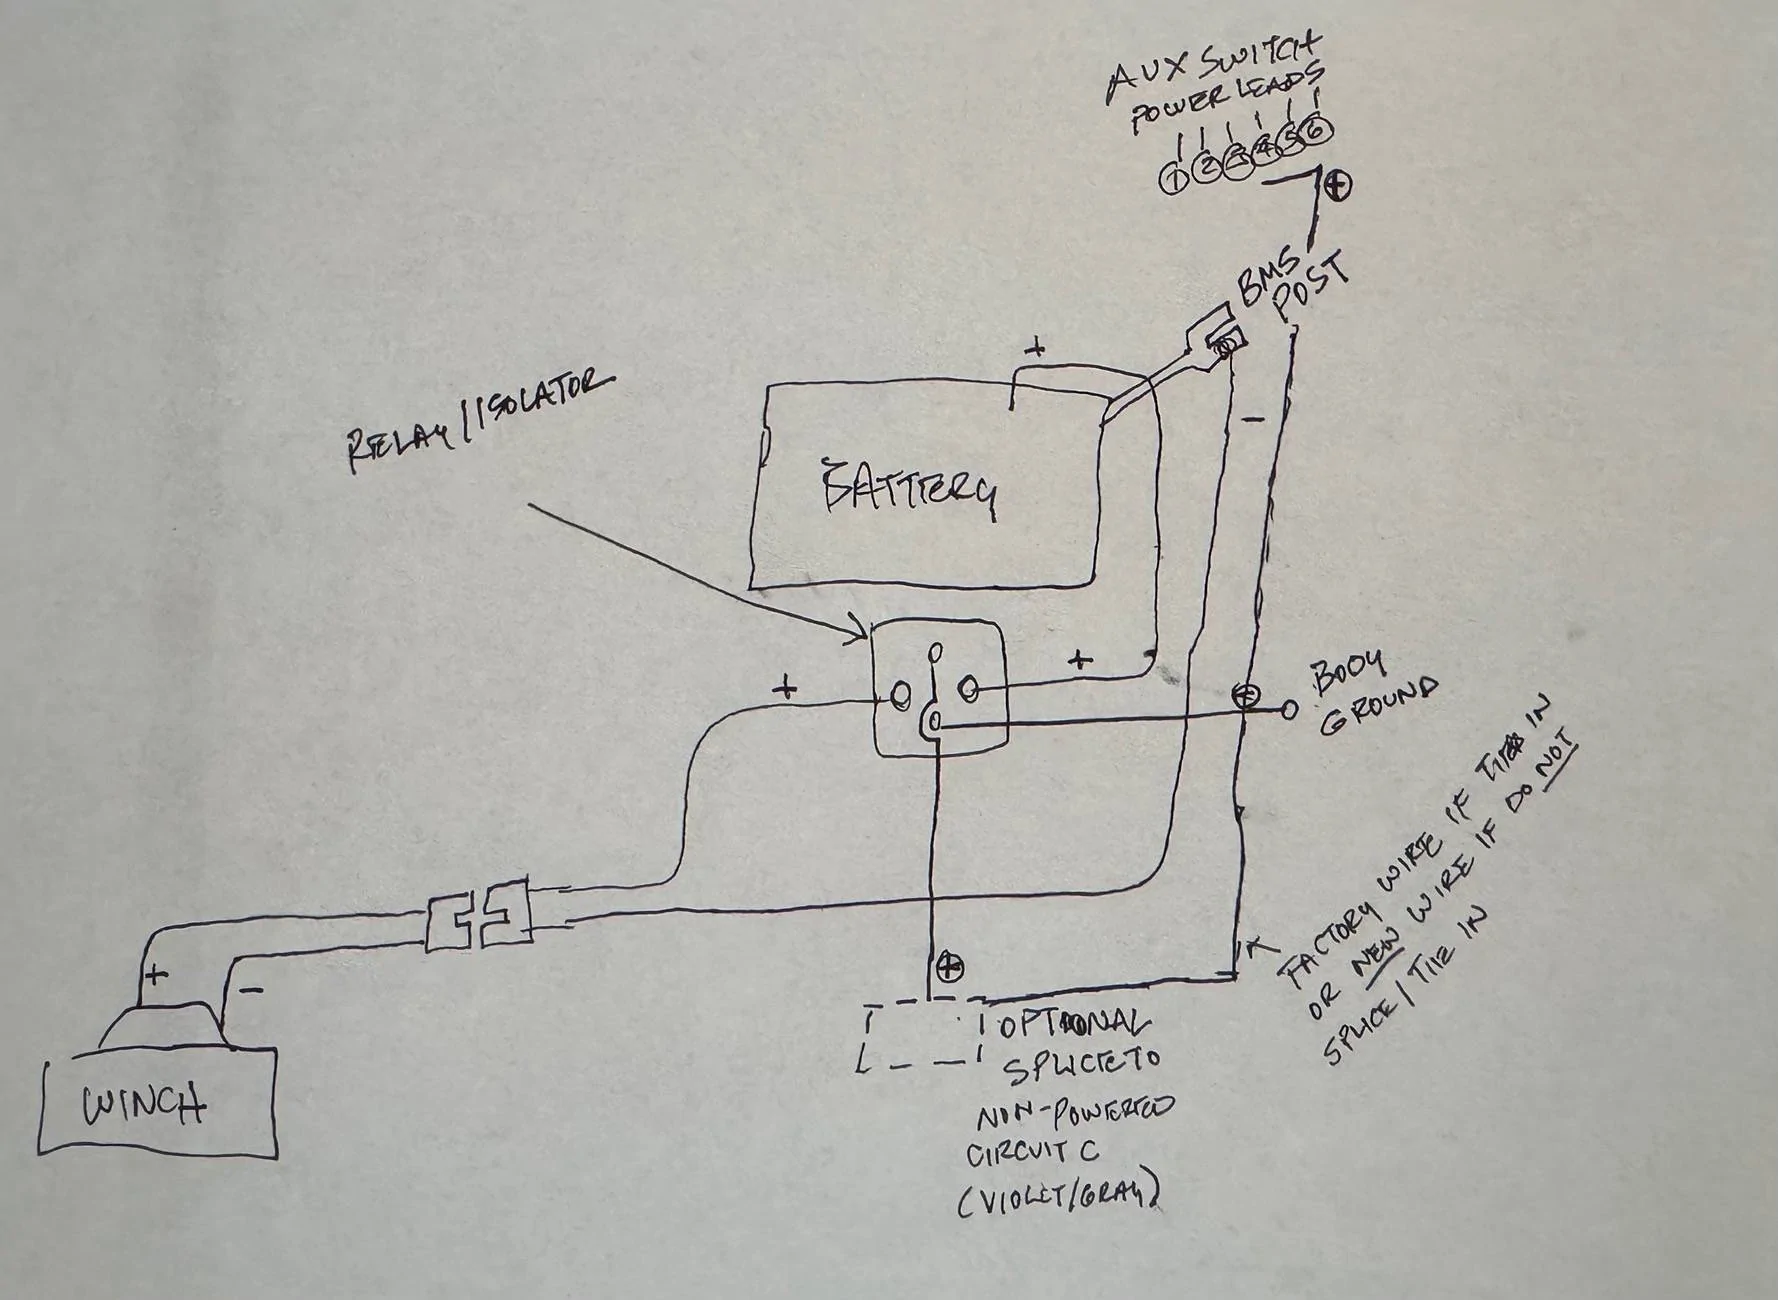 AUX SWITCH
POWER LEADS
1 2 3 4 5 6
+
BMS
POST
+
-
RELAY/ISOLATOR
BATTERY
+
+
+
BODY
GROUND
FACTORY WIRE IF TIES IN
OR NEW WIRE IF DO NOT
SPLICE/TIE IN
+
-
WINCH
+
OPTIONAL
SPLICE TO
NON-POWERED
CIRCUIT C
(VIOLET/GRAY)